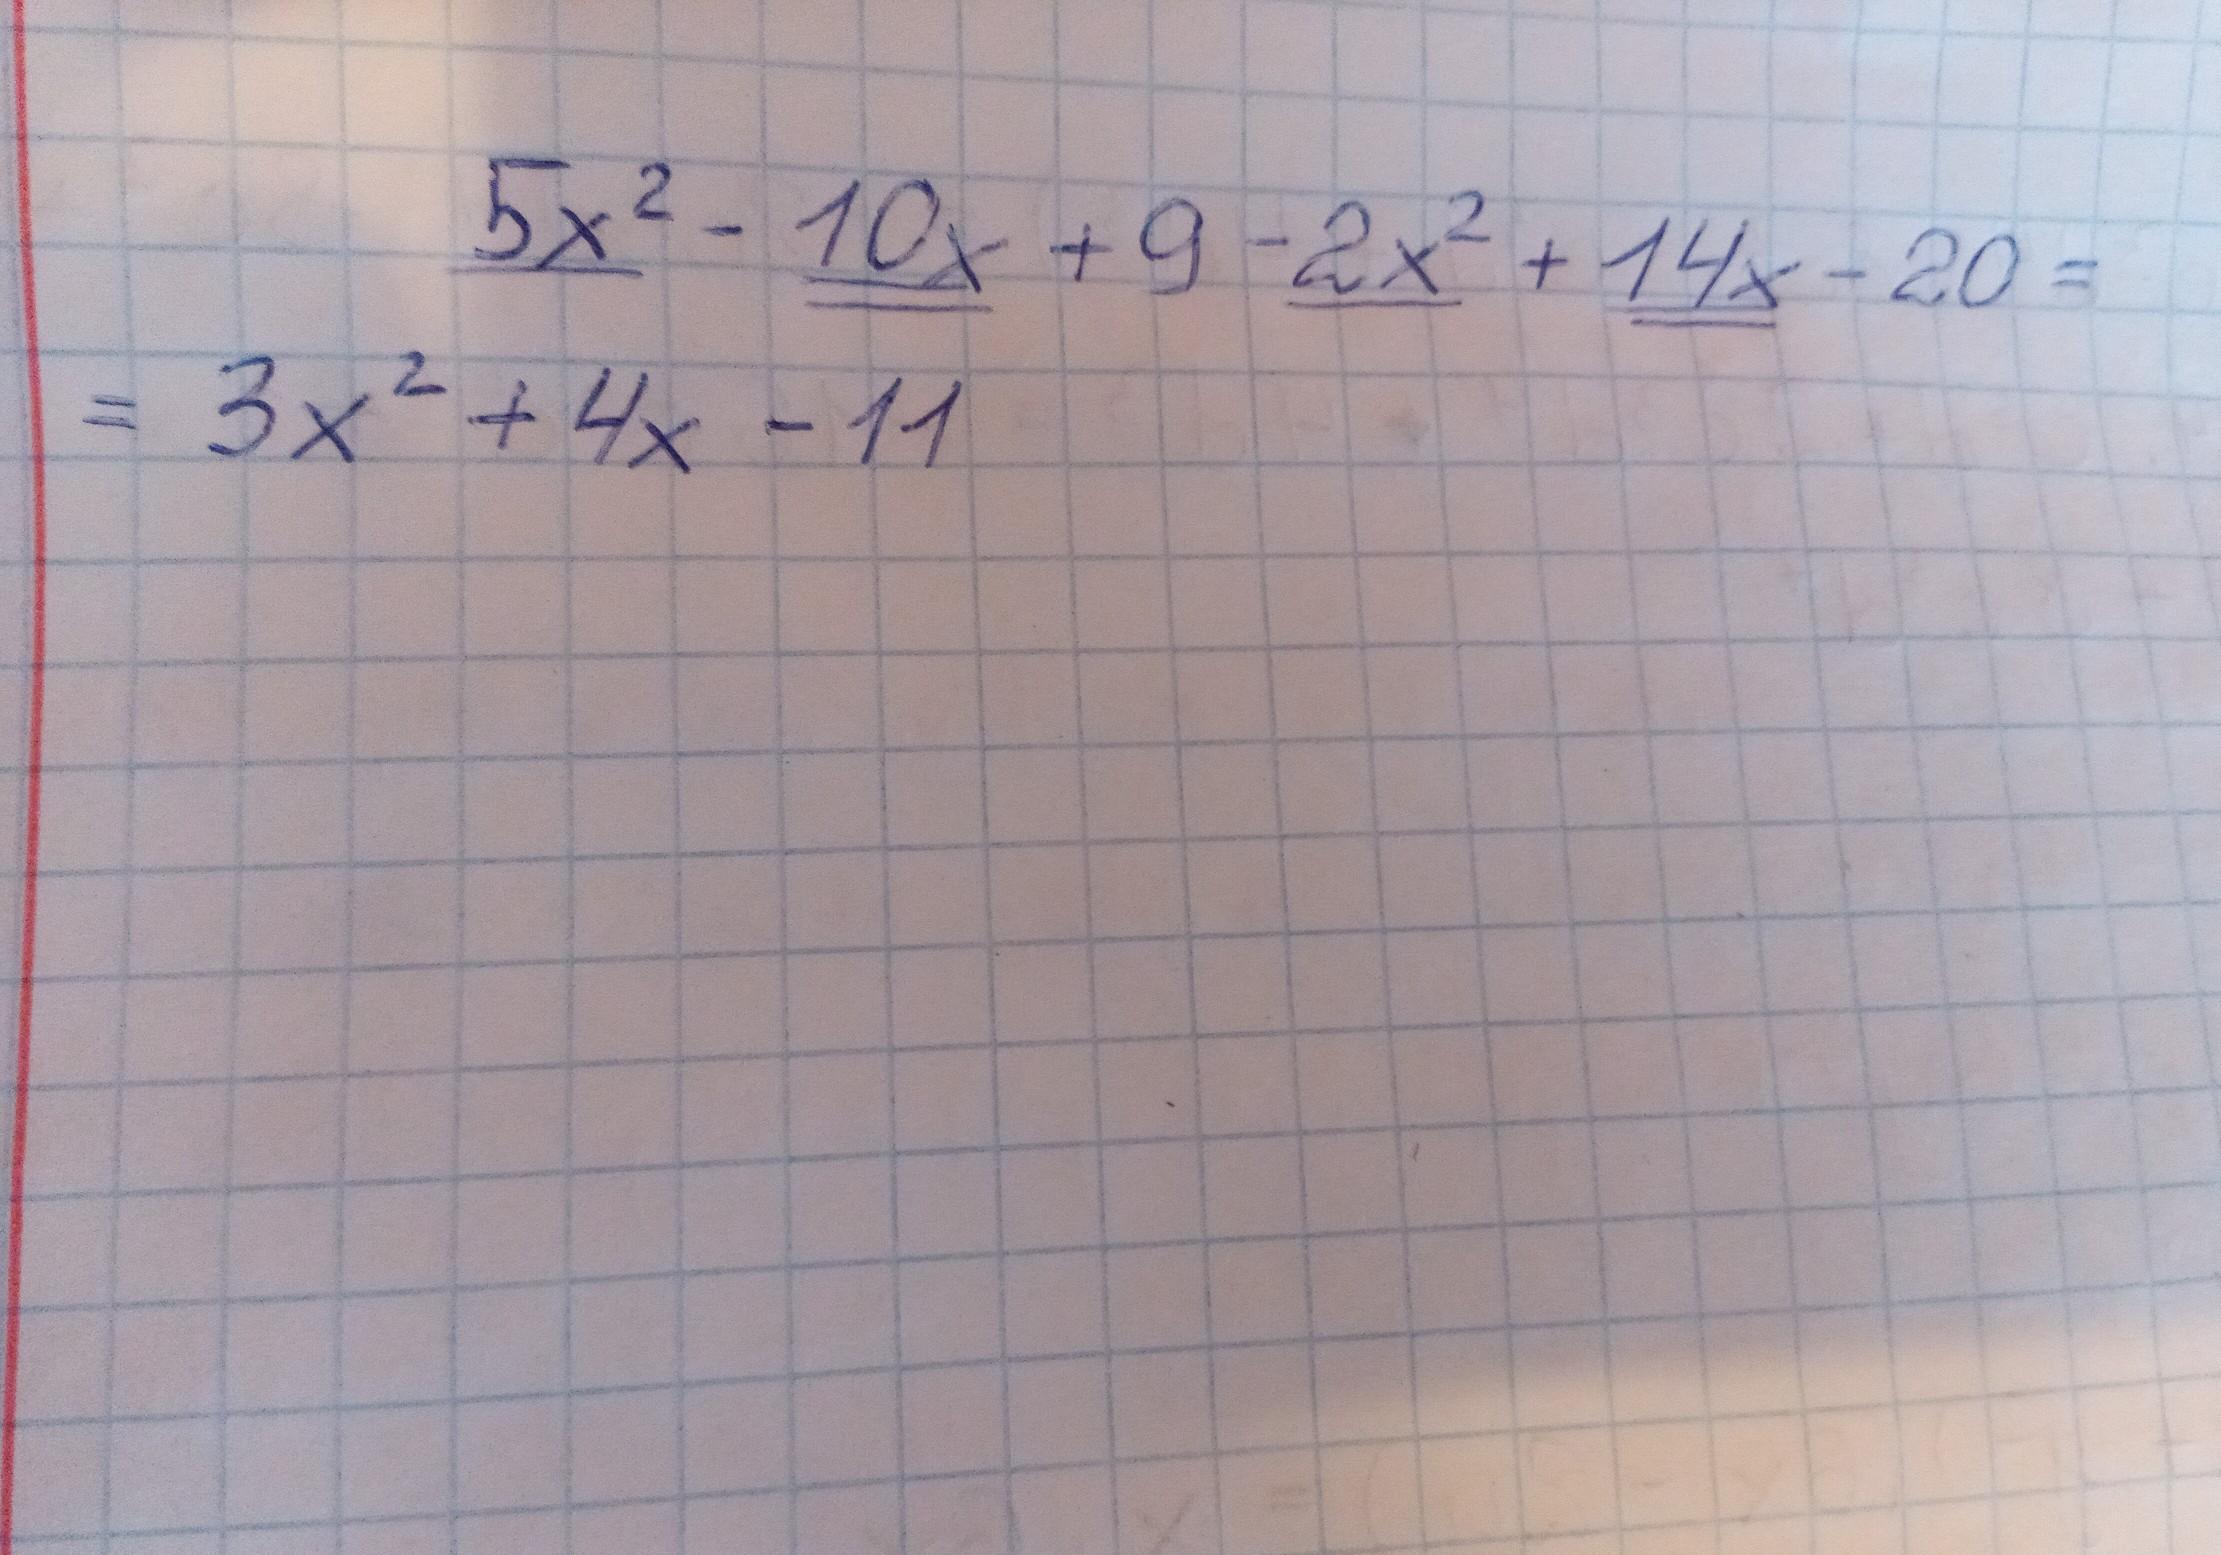 5x² - 10x + 9 - 2x² + 14x - 20 =
= 3x² + 4x - 11